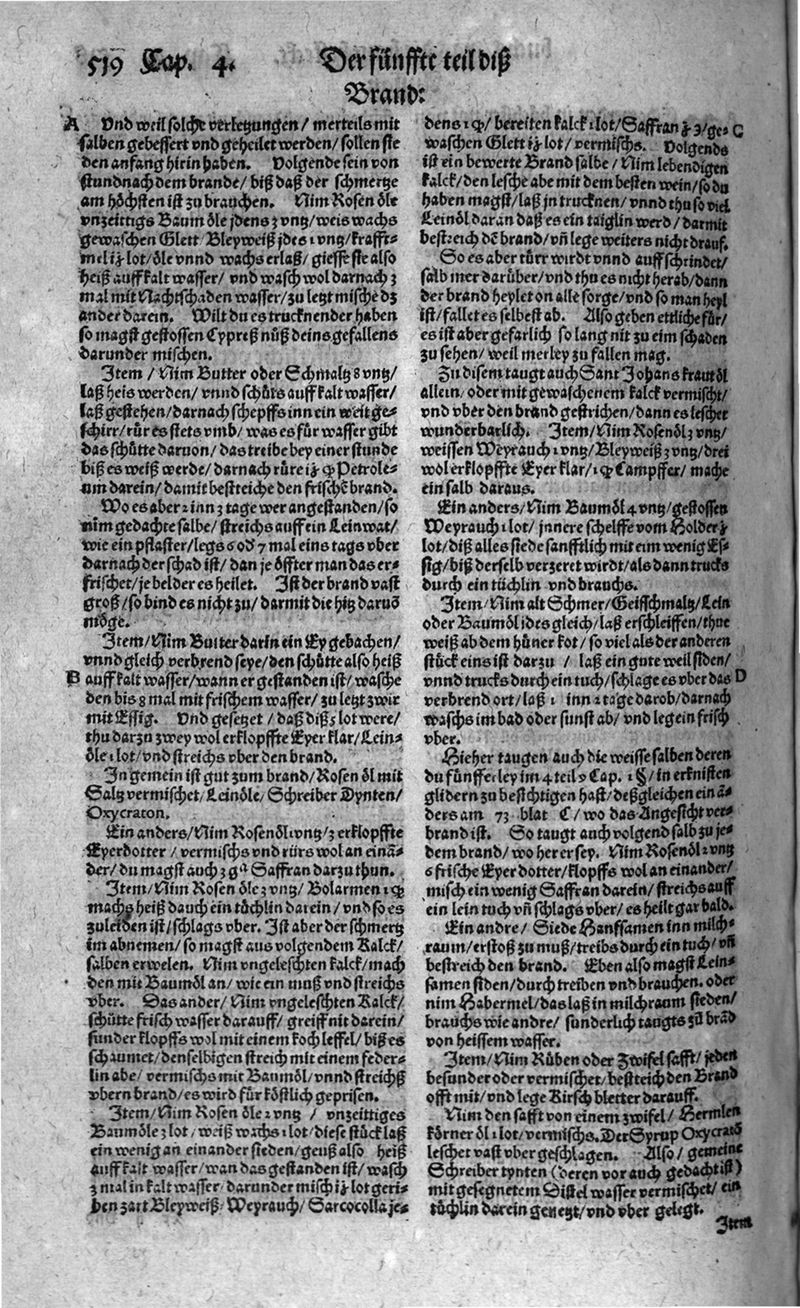 519 Cap. 4. Der fünffte teil diß
Brand:
A Vnd weil solche verletzungen / merteils mit
salben gebessert vnd geheilet werden / sollen sie
den anfang hirin haben. Volgende sein von
stund nach dem brande / biß daß der schmertze
am höchsten ist zu brauchen. Nim Rosen öle
vnzeittigs Baum öle jdens 2 vntz / weis wachs
gewaschen Glett / Bleyweiß jdes 1 vntz / krafft-
mel iɉ lot / öle vnnd wachs erlaß / giesse sie also
heiß auff kalt wasser / vnd wasch wol darnach 3
mal mit Nachtschaden wasser / zu letzt mische dz
ander darein. Wilt du es truckner der haben
so magst gestossen Cypreß nüß deins gefallens
darunder mischen.
Item / Nim Butter oder Schmaltz 8 vntz /
laß heis werden / vnnd schüts auff kalt wasser /
laß gestehen / darnach schepffs inn ein weit ge-
schirr / rür es stets vmb / was es für wasser gibt
das schütte daruon / das treibe bey einer stunde
biß es weiß werde / darnach rüre iɉ Petrole-
um darein / damit bestreiche den frischē brand.
Wo es aber 2 inn 3 tage wer angestanden / so
nim gedachte salbe / streichs auff ein Leinwat /
wie ein pflaster / legs 6 od' 7 mal eins tags vber
darnach der schad ist / dan je öffter man das er-
frischet / je belder es heilet. Ist der brand vast
groß / so bind es nicht zu / darmit die hitz daruō
möge.
Item / Nim Butter darin ein Ey gebachen /
vnnd gleich verbrend seye / den schütte also heiß
B auff kalt wasser / wann er gestanden ist / wasche
den bis 8 mal mit frischem wasser / zu letzt zwir
mit Essig. Vnd gesetzet / daß diß 5 lot were /
thu darzu zwey wol erklopffte Eyer klar / Lein-
öle 1 lot / vnd streichs vber den brand.
In gemein ist gut zum brand / Rosen öl mit
Saltz vermischet / Leinöle / Schreiber Dynten /
Oxycraton.
Ein anders / Nim Rosenöl 1 vntz / 3 erklopffte
Eyerdotter / vermischs vnd rürs wol an einā-
der / du magst auch 3 gᵃ Saffran darzu thun.
Item / Nim Rosen öle 2 vntz / Bolarmen 1
machs heiß dauch ein tüchlin darein / vnd so es
zuleiden ist / schlags vber. Ist aber der schmertz
im abnemen / so magst aus volgendem Kalck /
salben erwelen. Nim vngeleschten kalck / mach
den mit Baumöl an / wie ein muß vnd streichs
vber. Das ander / Nim vngeleschten Kalck /
schütte frisch wasser darauff / greiff nit darein /
sunder klopffs wol mit einem koch leffel / biß es
schaumet / denselbigen streich mit einem feder-
lin abe / vermischs mit Baumöl / vnnd streichß
vbern brand / es wird für köstlich geprisen.
Item / Nim Rosen öle 2 vntz / vnzeittiges
Baumöle 3 lot / weiß wachs 1 lot / diese stück laß
ein wenig an einander sieden / geuß also heiß
auff kalt wasser / wan das gestanden ist / wasch
3 mal in kalt wasser / darunder misch iɉ lot geri-
ben zart Bleyweiß / Weyrauch / Sarcocolla je-
dens 1 / bereiten kalck 1 lot / Saffran 3 / ge- C
waschen Glett iɉ lot / vermischs. Volgends
ist ein bewerte Brand salbe / Nim lebendigen
kalck / den lesche abe mit dem besten wein / so du
haben magst / laß jn trucknen / vnnd thu so viel
Leinöl daran daß es ein taiglin werd / darmit
bestreich dē brand / vñ lege weiters nicht drauf.
So es aber türr wirdt vnnd auffschrindet /
salb mer darüber / vnd thu es nicht herab / dann
der brand heylet on alle sorge / vnd so man heyl
ist / fallet es selbest ab. Also geben ettliche für /
es ist aber gefarlich so lang nit zu eim schaden
zu sehen / weil merley zu fallen mag.
Zu disem taugt auch Sant Johans kraut öl
allein / oder mit gewaschenem kalck vermischt /
vnd vber den brand gestrichen / dann es leschet
wunderbarlich. Item / Nim Rosenöl 2 vntz /
weissen Weyrauch 1 vntz / Bleyweiß 2 vntz / drei
wol erklopffte Eyer klar / 1 Campffer / mache
ein salb daraus.
Ein anders / Nim Baumöl 4 vntz / gestossen
Weyrauch 1 lot / jnnere schelffe vom Holder ɉ
lot / diß alles siede sanfftlich mit ein wenig Es-
sig / biß derselb verzeret wirdt / als dann trucks
durch ein tüchlin vnd brauchs.
Item / Nim alt Schmer / Geisschmaltz / Lein
oder Baumöl jdes gleich / laß erschleiffen / thue
weiß ab dem hüner kot / so viel als der anderen
stück eins ist darzu / laß ein gute weil siden /
vnnd trucks durch ein tuch / schlage es vber das D
verbrend ort / laß 1 inn 2 tage darob / darnach
waschs im bad oder sunst ab / vnd leg ein frisch
vber.
Hieher taugen auch die weisse salben deren
du fünfferley im 4 teil 9 Cap. 1 §/ in erknisten
glidern zu besichtigen hast / deßgleichen ein ā-
ders am 73 blat C / wo das Angesicht ver-
brand ist. So taugt auch volgend salb zu je-
dem brand / wo her er sey. Nim Rosenöl 2 vntz
6 frische Eyer dotter / klopffs wol an einander /
misch ein wenig Saffran darein / streichs auff
ein lein tuch vñ schlags vber / es heilt gar bald.
Ein andre / Siede Hanffsamen inn milch-
raum / erstoß zu muß / treibs durch ein tuch / vñ
bestreich den brand. Eben also magst Lein-
samen siden / durch treiben vnd brauchen. oder
nim Habermel / das laß in milchraum sieden /
brauchs wie andre / sunderlich taugts zū brād
von heissem wasser.
Item / Nim Rüben oder Zwifel safft / jeden
besunder oder vermischet / bestreich den Brand
offt mit / vnd lege Kirsch bletter darauff.
Nim den safft von einem zwifel / Hermlen
körner öl 1 lot / vermischs. Der Syrup Oxycratō
leschet vast vber geschlagen. Also / gemeine
Schreiber tynten (deren vor auch gedacht ist)
mit gesegnetem Distel wasser vermischet / ein
tüchlin darein genetzt / vnd vber gelegt.
Item